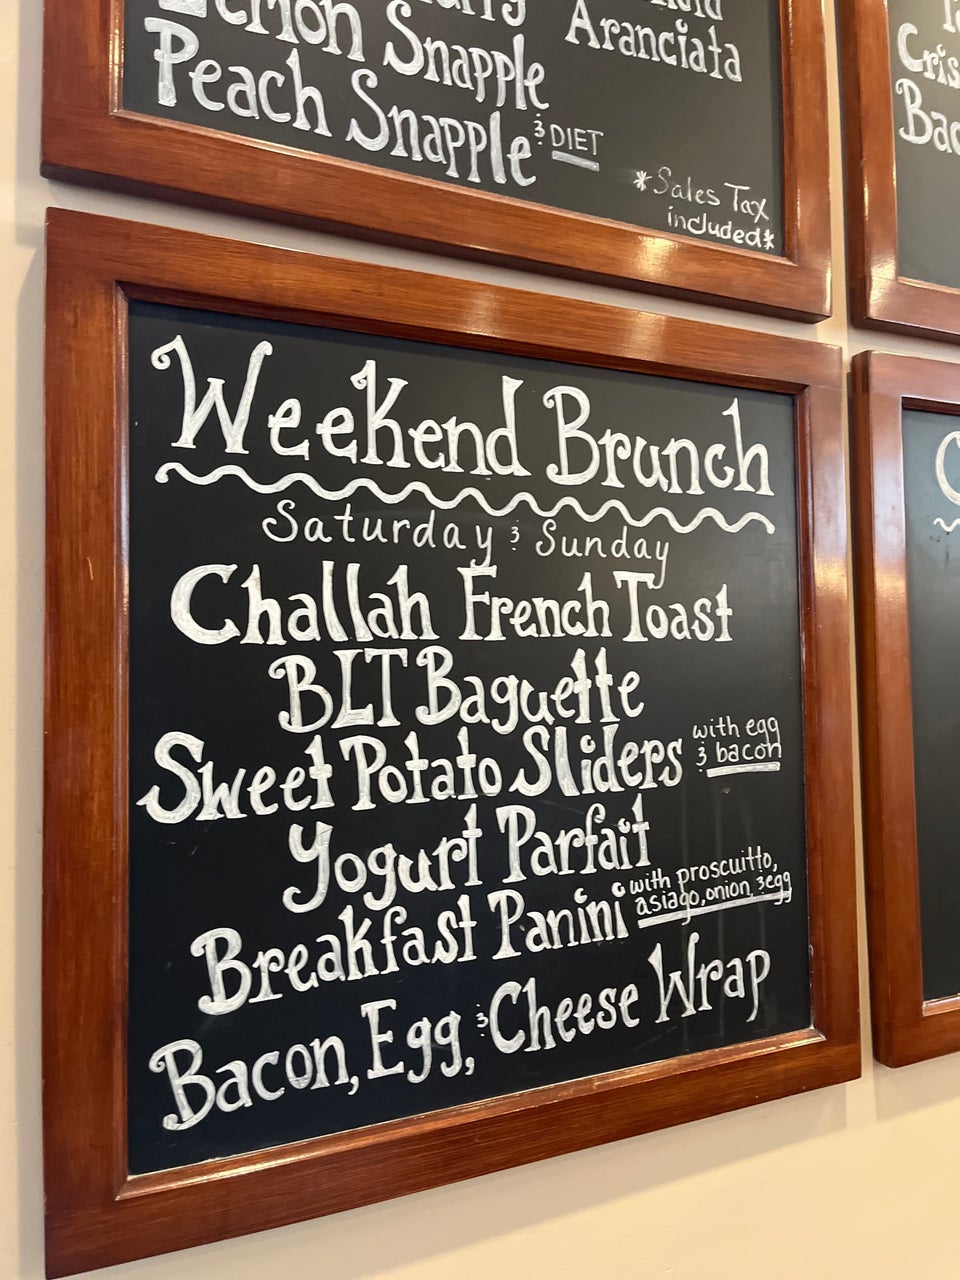 Aranciata
Lemon Snapple
Peach Snapple & DIET
*Sales Tax
included*
Cris
Bac
Weekend Brunch
Saturday & Sunday
Challah French Toast
BLT Baguette
Sweet Potato Sliders with egg
& bacon
Yogurt Parfait
Breakfast Panini with proscuitto,
asiago, onion, & egg
Bacon, Egg, & Cheese Wrap